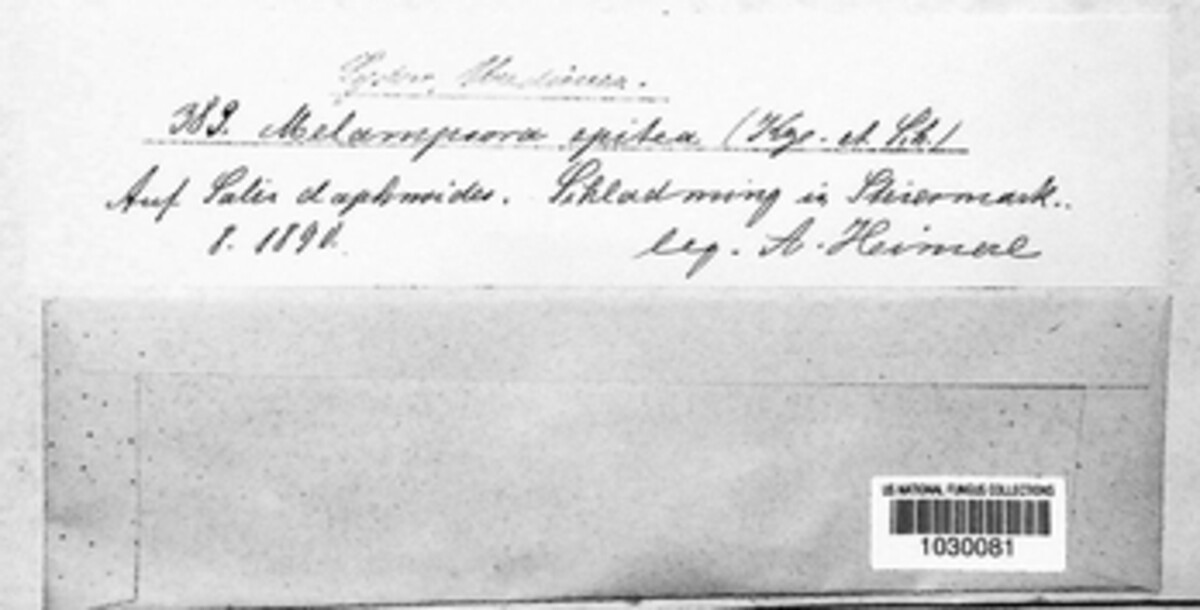 Sydow, Uredineen.
389. Melampsora epitea (Kze. et Sch.)
Auf Salix daphnoides. Schladming in Steiermark.
8. 1890. leg. A. Heimerl
US NATIONAL FUNGUS COLLECTIONS
1030081